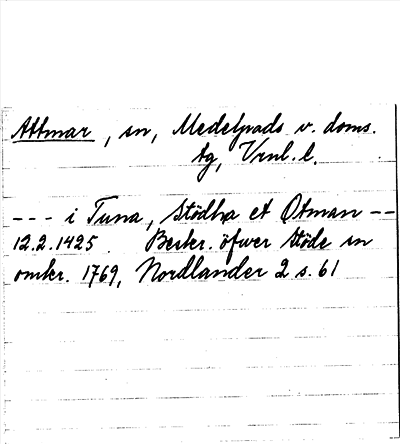 Attmar, sn, Medelpads v. doms.
tg, Vrnl. l.
--- i Tuna, Stödhæ et Otman --
12.2.1425. Beskr. öfwer Stöde sn
omkr. 1769, Nordlander 2 s. 61